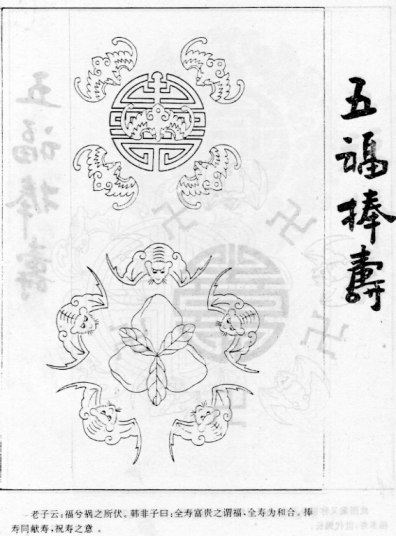 五福捧壽
老子云：福兮祸之所伏。韩非子曰：全寿富贵之谓福，全寿为和合。捧
寿同献寿，祝寿之意。